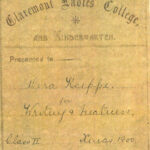 Claremont Ladies' College,
AND KINDERGARTEN.
Presented to
for
Writing & Neatness,
Class II Xmas 1900.